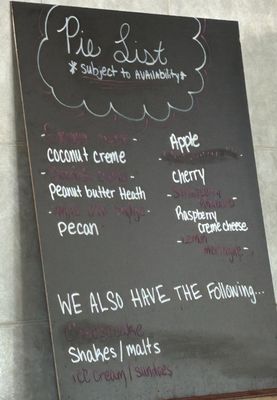 Pie List
*Subject to Availability*
coconut creme
Peanut butter Heath
Pecan
Apple
cherry
Raspberry
creme cheese
Lemon
meringue
WE ALSO HAVE THE Following...
cheesecake
Shakes/malts
ice cream/sundaes